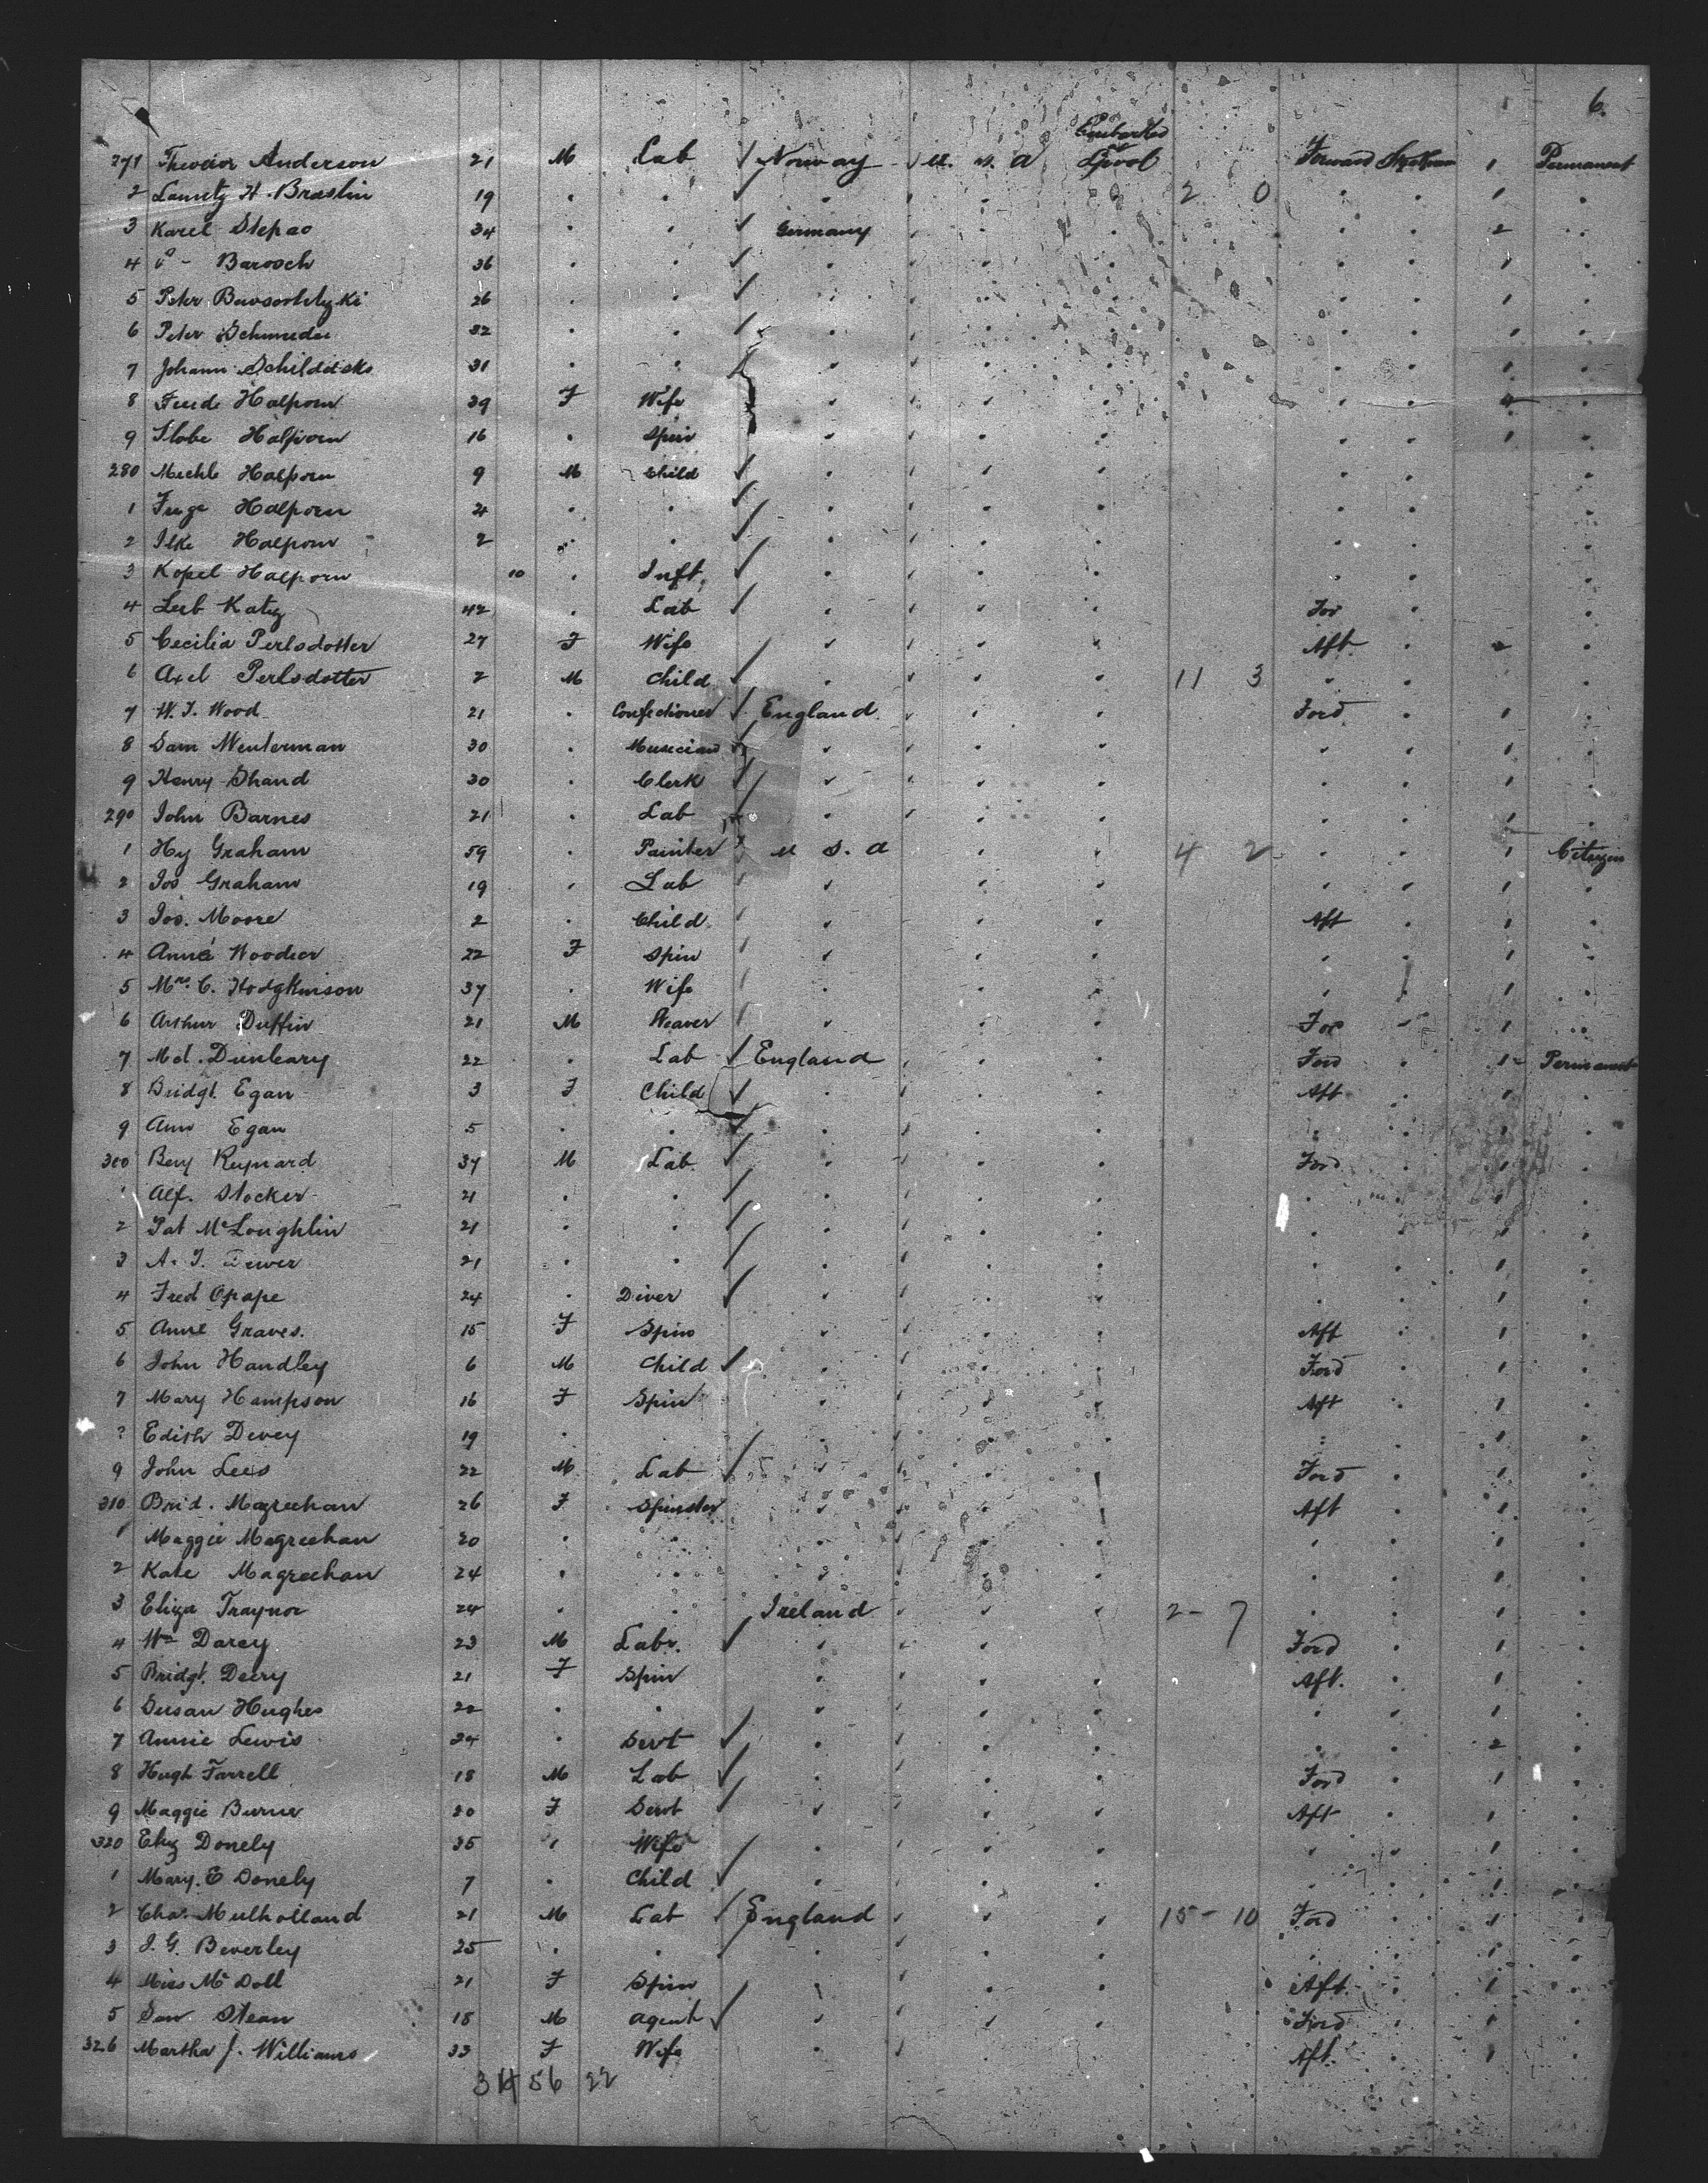 6.
Embarked
271 Theodor Anderson 21 M Lab ✓ Norway U. S. A L'pool Forward Steerage 1 Permanent
2 H. Braslin 19 . . ✓ . . . 2 0 . . 1 .
3 Karel Stepao 34 . . ✓ Germany . . . . . 2 .
4 Barosch 36 . . ✓ . . . . . . 1 .
5 Peter 26 . . ✓ . . . . . . 1 .
6 Peter 32 . . ✓ . . . . . . 1 .
7 Johann 31 . . ✓ . . . . . . 1 .
8 Halporn 39 F Wife . . . . . .
9 Slobe Halporn 16 . Spin . . . . . . 1 .
280 Mechle Halporn 9 M Child ✓ . . . . . . .
1 Halporn 4 . . ✓ . . . . . . .
2 Ilke Halporn 2 . . ✓ . . . . . . .
3 Kopel Halporn 10 . Inft ✓ . . . . . . .
4 Leib Katz 42 . Lab ✓ . . . . For . .
5 Cecilia Perlsdotter 27 F Wife . . . . Aft . 2 .
6 Axel Perlsdotter 2 M Child ✓ . . . . 11 3 . . .
7 W. J. Wood 21 . Confectioner ✓ England . . . Ford . 1 .
8 Sam Wenterman 30 . Musician ✓ . . . . . . 1 .
9 Henry Shand 30 . Clerk ✓ . . . . . . 1 .
290 John Barnes 21 . Lab ✓ . . . . . . 1 .
1 Hy Graham 59 . Painter U S. A . . 4 2 . . 1 Citizen
2 Jos Graham 19 . Lab . . . . . . 1 .
3 Jos. Moore 2 . Child . . . Aft . 1 .
4 Annie Woodier 22 F Spin . . . . . 1 .
5 Mrs. C. Hodgkinson 37 . Wife . . . . . 1 .
6 Arthur Duffin 21 M Weaver . . . For . 1 .
7 Md. Dunleary 22 . Lab ✓ England . . . Ford . 1 Permanent
8 Bridgt Egan 3 F Child ✓ . . . . Aft . 1 .
9 Ann Egan 5 . . ✓ . . . . . . 1 .
300 Benj Reynard 37 M Lab ✓ . . . . Ford . 1 .
1 Alf. Stocker 21 . . ✓ . . . . . . 1 .
2 Pat McLoughlin 21 . . ✓ . . . . . . 1 .
3 A. J. 21 . . ✓ . . . . . . 1 .
4 Fred Opape 24 . Diver ✓ . . . . . . 1 .
5 Anne Graves. 15 F Spin . . . . Aft . 1 .
6 John Handley 6 M Child ✓ . . . . Ford . 1 .
7 Mary Hampson 16 F Spin . . . . Aft . 1 .
8 Edith Devey 19 . . . . . . . . 1 .
9 John Lees 22 M Lab ✓ . . . . Ford . 1 .
310 Brid. Magreehan 26 F Spinster . . . . Aft . 1 .
1 Maggie Magreehan 20 . . . . . . . . 1 .
2 Kate Magreehan 24 . . . . . . . . 1 .
3 Eliza Traynor 24 . . Ireland . . . 2 - 7 . . 1 .
4 Wm Darcy 23 M Labr. ✓ . . . . Ford . 1 .
5 Bridgt. Deery 21 F Spin . . . . Aft. . 1 .
6 Susan Hughes 22 . . . . . . . . 1 .
7 Annie Lewis 24 . Servt ✓ . . . . . . 2 .
8 Hugh Farrell 18 M Lab ✓ . . . . Ford . 1 .
9 Maggie Burns 20 F Servt ✓ . . . . Aft . 1 .
320 Eliz Donely 35 . Wife . . . . . . 1 .
1 Mary. E Donely 7 . Child ✓ . . . . . . 1 .
2 Chas. Mulholland 21 M Lab ✓ England . . . 15 - 10 Ford . 1 .
3 J. G. Beverley 25 . . ✓ . . . . . . 1 .
4 Miss Mc Doll 21 F Spin . . . . Aft. . 1 .
5 Stean 18 M Agent ✓ . . . . Ford . 1 .
326 Martha J. Williams 33 F Wife . . . . Aft. . 1 .
56 22